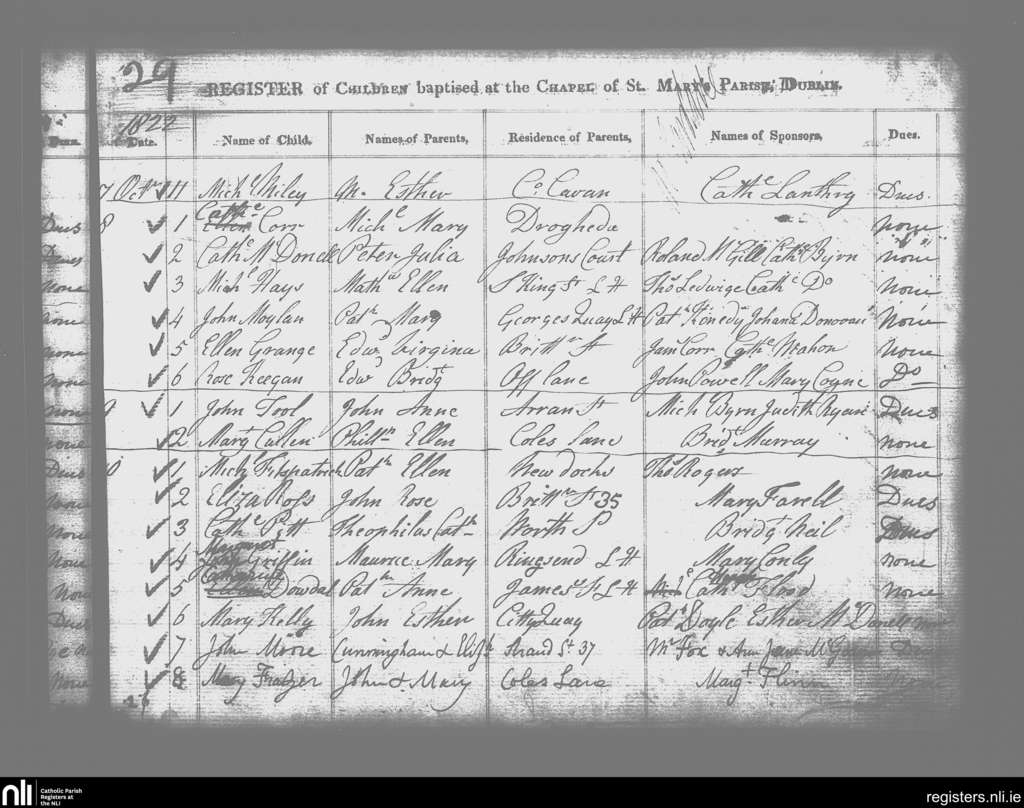 29
REGISTER of CHILDREN baptised at the CHAPEL of St. MARY'S PARISH, DUBLIN.
1822
Date. Name of Child, Names of Parents, Residence of Parents, Names of Sponsors, Dues.
7 Octr 11 Michl Miley M. Esther Co Cavan Cathe Lanthry Dues.
Cathe
Dues 8 1 Ellen Corr Michl Mary Drogheda none
Dues 2 Cathe McDonell Peter Julia Johnsons Court Roland McGill Cathe Byrn none
None 3 Michl Hays Mathw Ellen S King St L H Thos Ledwige Cathe Do None
none 4 John Moylan Patk Mary Georges Quay L H Patk Kinedy Johana Donovan None
none 5 Ellen Grange Edwd Virginia Britt St Jams Corr Cathe Mahon None
none 6 Rose Keegan Edwd Bridgt Off lane John Powell Mary Coyne Do
none 9 1 John Tool John Anne Arran St Michl Byrn Judith Ryan Dues
none 2 Margt Cullen Phill Ellen Coles Lane Bridt Murray none
Dues 10 1 Michl Fitzpatrick Patk Ellen New docks Thos Rogers none
None 2 Eliza Ross John Rose Britt St 35 Mary Farell Dues
None 3 Cathe Pitt Theophilus Cath North S Bridgt Neil Dues
None 4 Griffin Maurice Mary Ringsend L H Mary Conly none
None 5 Dowdal Patk Anne James St L H Cathe Flood None
Dues 6 Mary Kelly John Esther Citty Quay Patk Doyle Esther McDanell
7 John Moore Cunningham & Elizh Strand St 37 Mr Fox & Ann Jane
None 8 Mary Frazer John & Mary Coles Lane Margt Flinn
nli Catholic Parish
Registers at
the NLI
registers.nli.ie